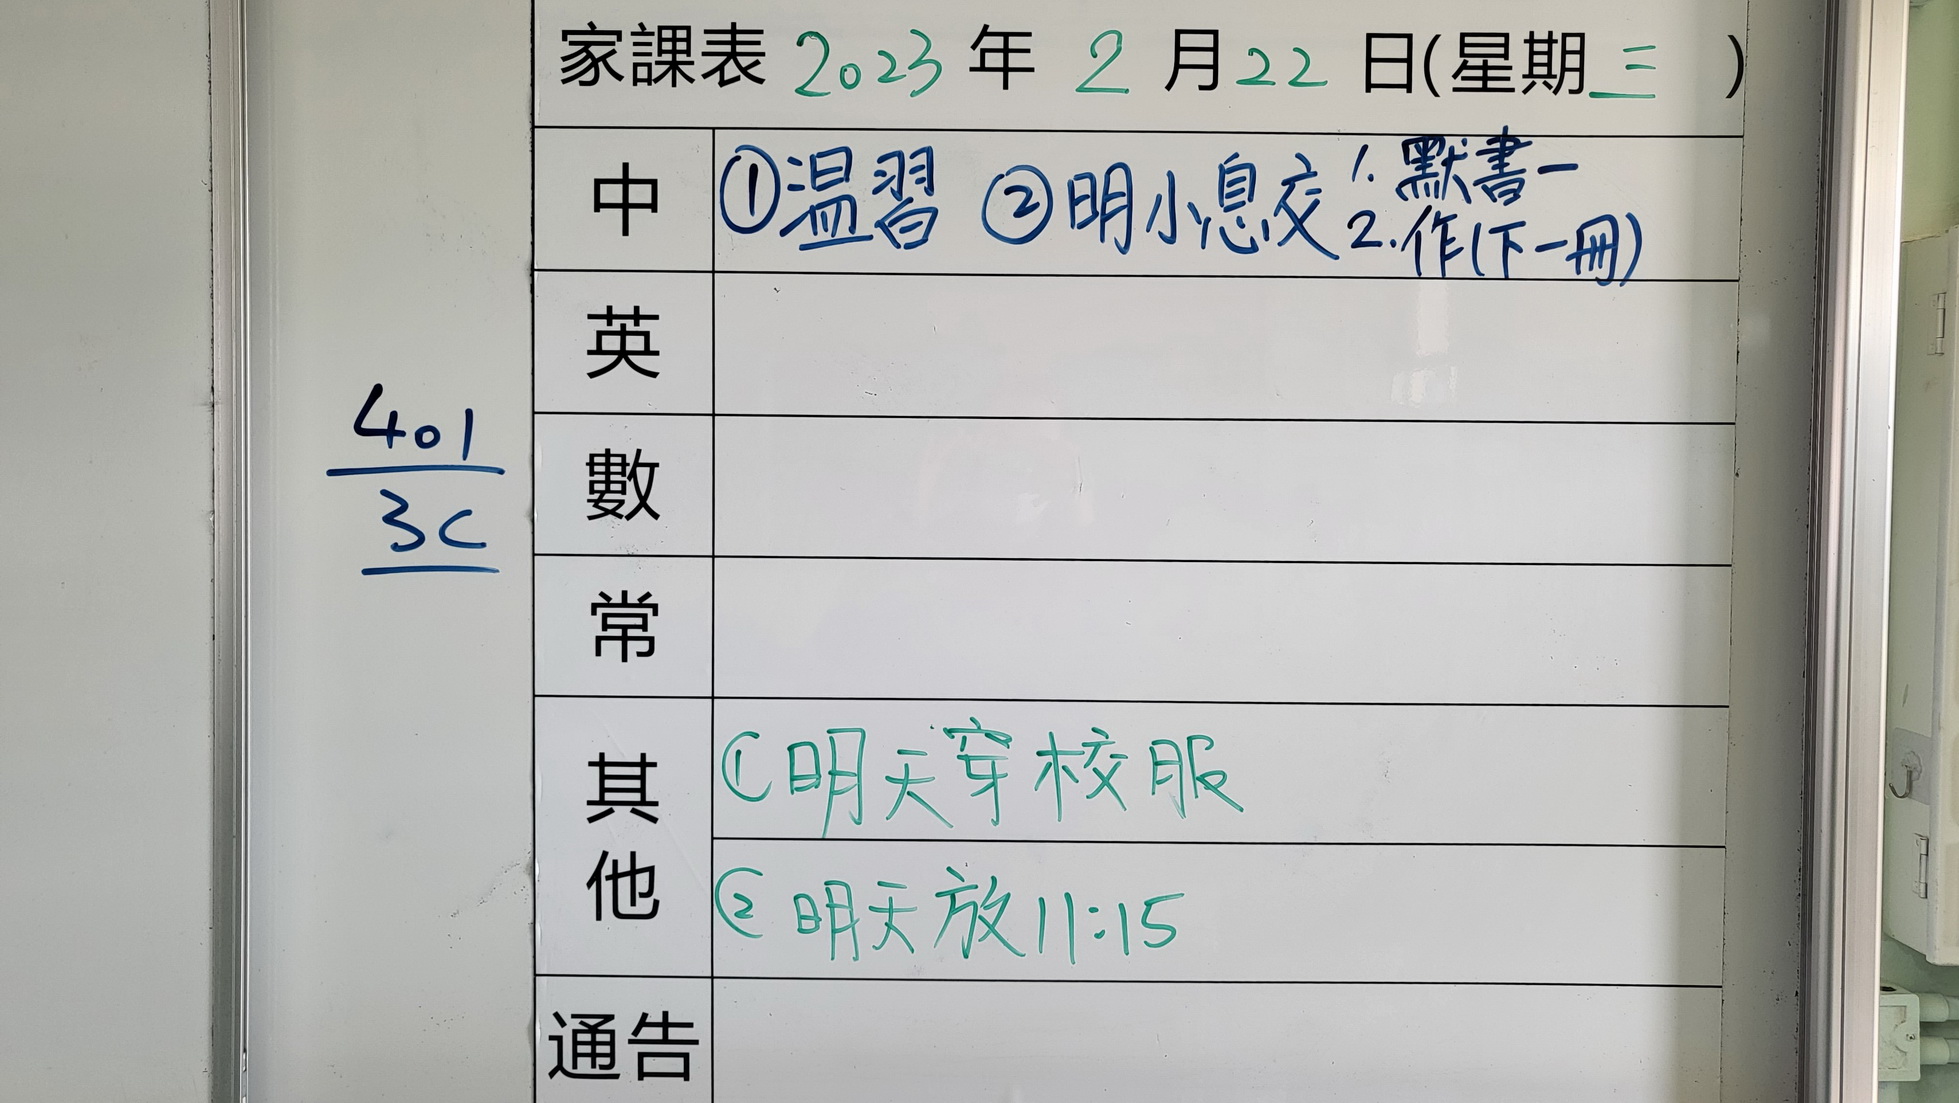 家課表 2023 年 2 月 22 日(星期三)
中 ①温習 ②明小息交 1. 默書一
2. 作(下一冊)
英
401
3C
數
常
其他 ①明天穿校服
②明天放11:15
通告